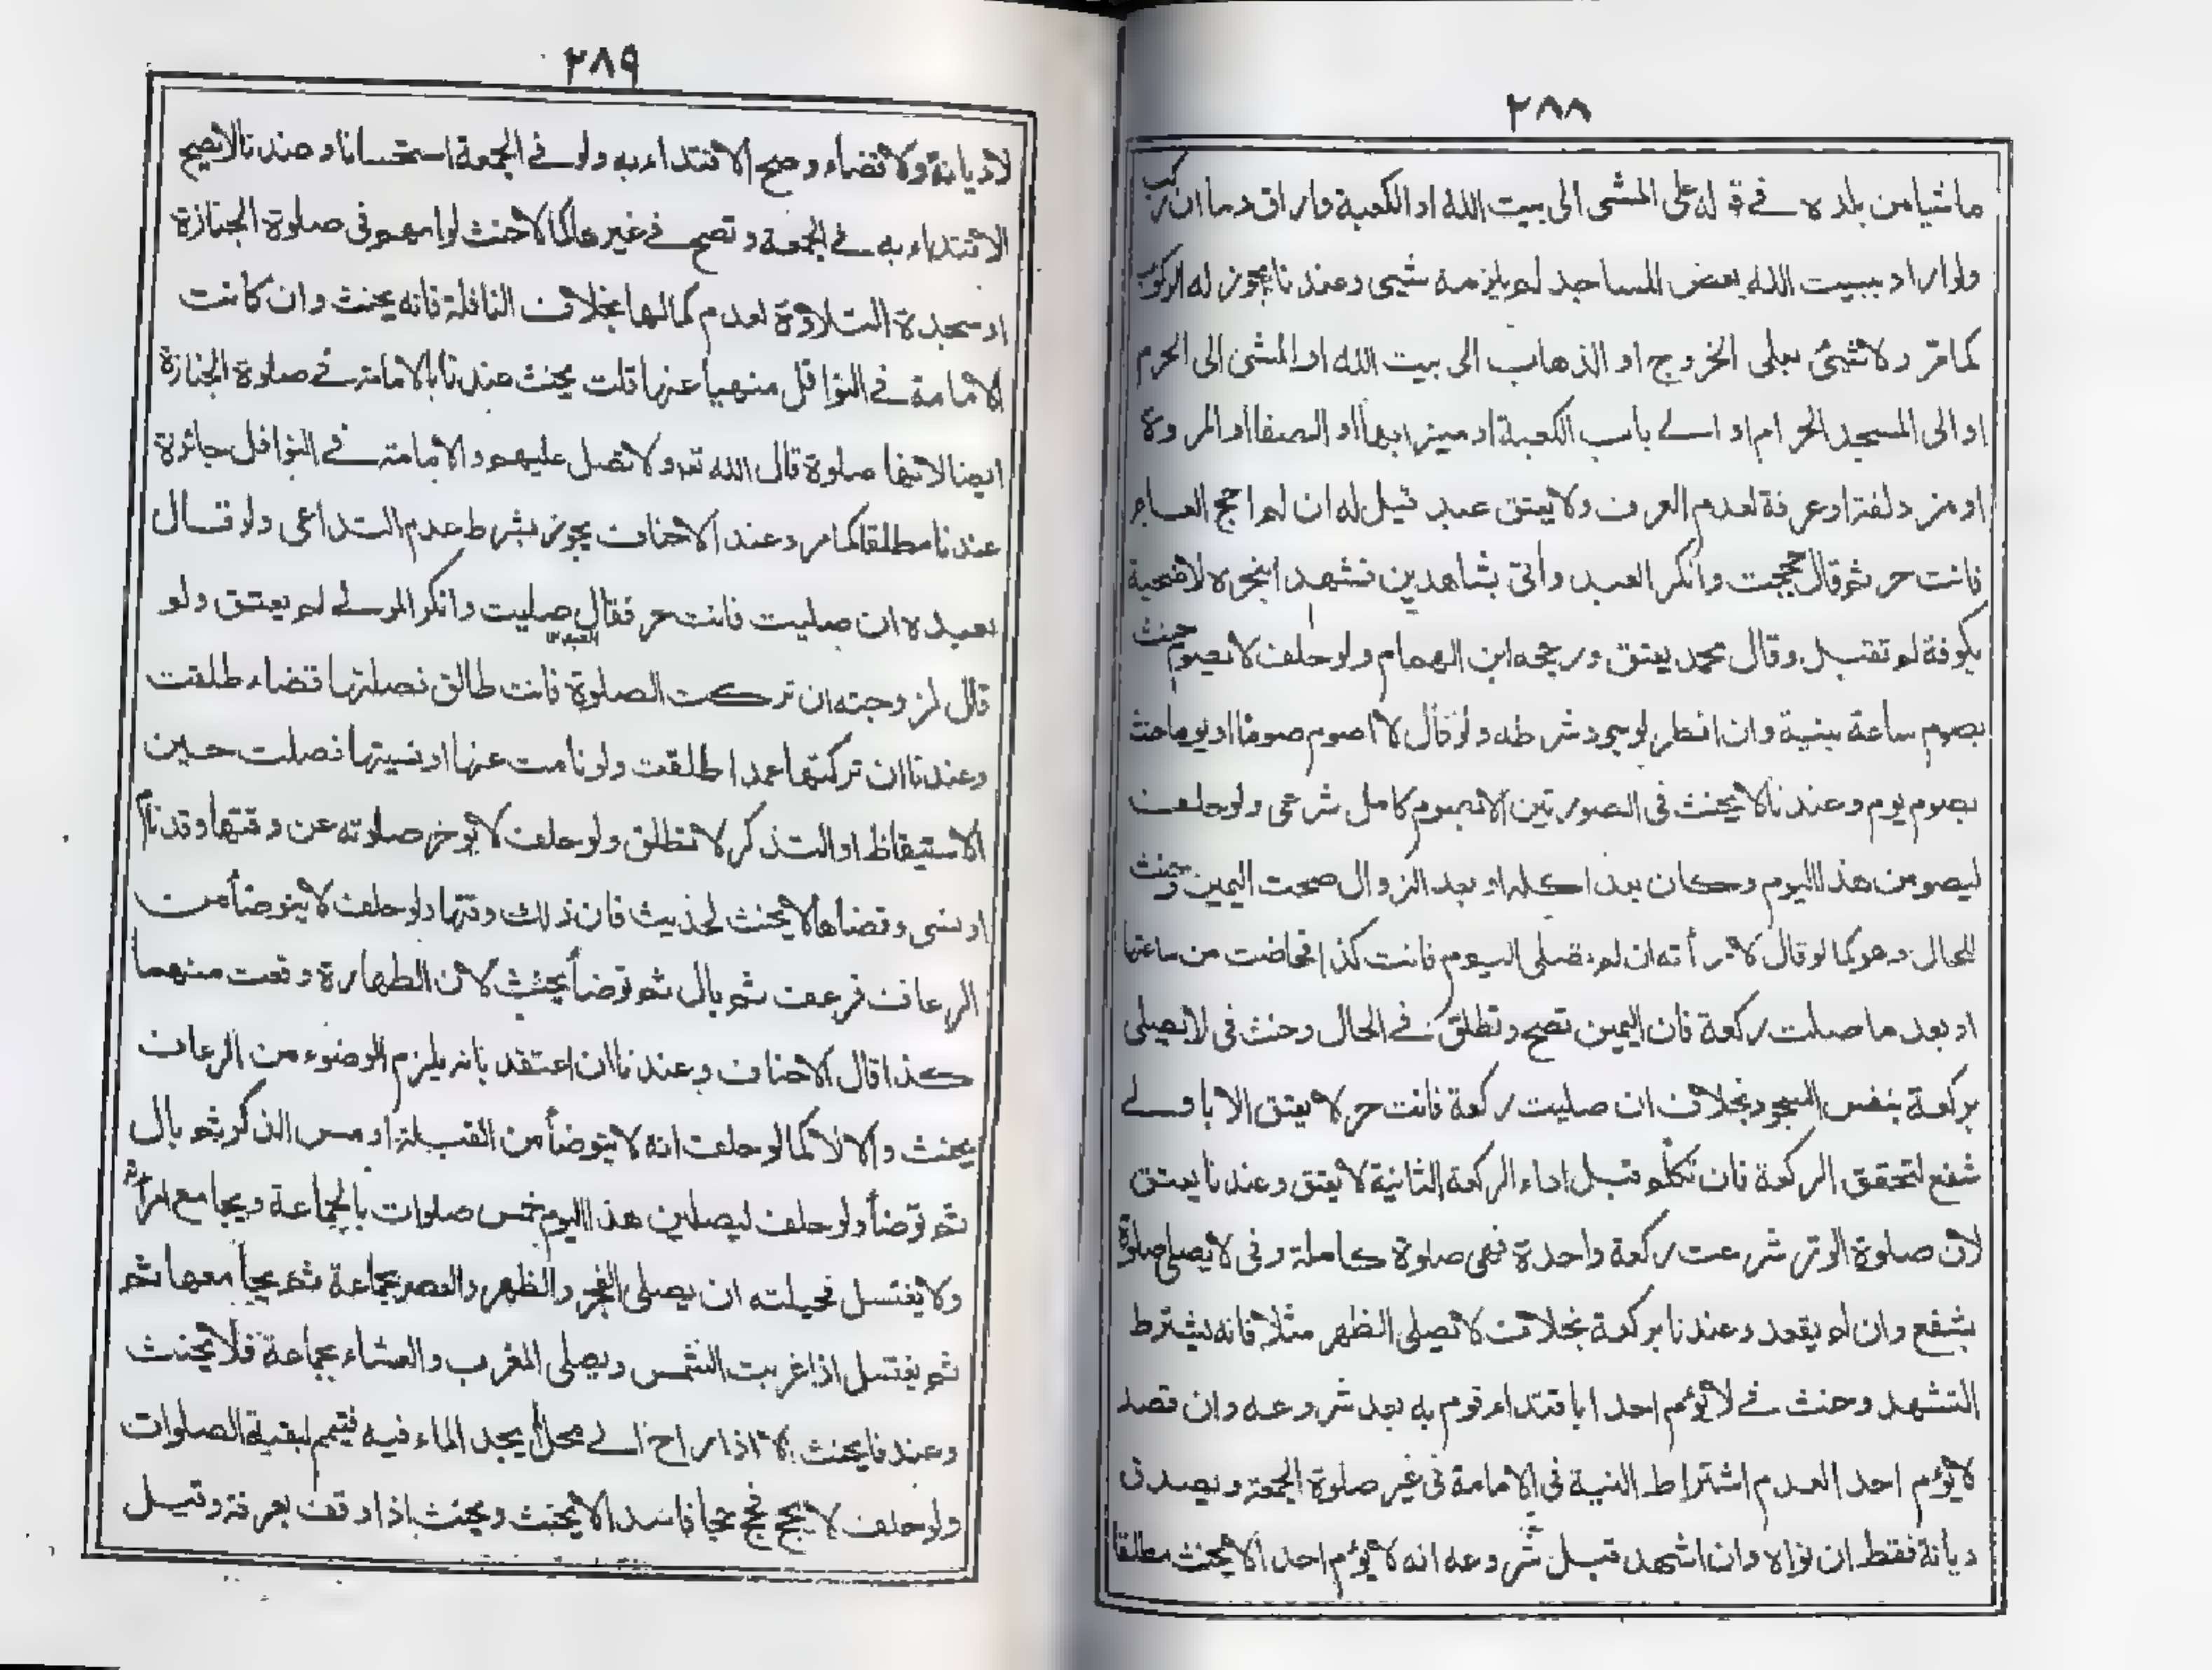 ٢٨٨
ماشيا من بلده في قوله علي المشى الى بيت الله او الكعبة واراق دما ان ركب
ولو اراد ببيت الله بعض المساجد لم يلزمه شيئ وعندنا يجوز له الركوب
كما مر ولا شيئ بعلى الخروج او الذهاب الى بيت الله او المشى الى الحرم
او الى المسجد الحرام او الى باب الكعبة او ميزابها او الصفا او المروة
او مزدلفة او عرفة لعدم العرف ولا يعتق عبد قيل له ان لم احج العام
فانت حر ثم قال حججت وانكر العبد وأتى بشاهدين فشهدا بنحره لاضحية
بكوفة لم تقبل وقال محمد يعتق ورجحه ابن الهمام ولو حلف لا يصوم حنث
بصوم ساعة بنية وان افطر لوجود شرطه ولو قال لا اصوم صوما او يوما حنث
بصوم يوم وعندنا لا يحنث فى الصورتين الا بصوم كامل شرعى ولو حلف
ليصومن هذا اليوم وكان بعد اكله او بعد الزوال صحت اليمين وحنث
للحال وهو كما لو قال لامرأته ان لم تصلى اليوم فانت كذا فحاضت من ساعتها
او بعد ما صلت ركعة فان اليمين تصح وتطلق في الحال وحنث فى لا يصلى
بركعة بنفس السجود بخلاف ان صليت ركعة فانت حر لا يعتق الا باولى
شفع لتحقق الركعة فان تكلم قبل اداء الركعة الثانية لا يعتق وعندنا يعتق
لان صلوة الوتر شرعت ركعة واحدة فهى صلوة كاملة وفى لا يصلى صلوة
بشفع وان لم يقعد وعندنا بركعة بخلاف لا تصلى الظهر مثلا فانه يشترط
التشهد وحنث في لا يؤم احدا باقتداء قوم به بعد شروعه وان قصد
لا يؤم احد العدم اشتراط النية فى الامامة فى غير صلوة الجمعة ويصدق
ديانة فقط ان نواه وان اشهد قبل شروعه انه لا يؤم احدا لا يحنث مطلقا
٢٨٩
لا ديانة ولا قضاء وصح الاقتداء به ولو في الجمعة استحسانا وعندنا لا تصح
الاقتداء به في الجمعة وتصح في غيرها كما لا حنث لو امهم فى صلوة الجنازة
او سجدة التلاوة لعدم كمالها بخلاف النافلة فانه يحنث وان كانت
الامامة في النوافل منهيا عنها قلت يحنث عندنا بالامامة في صلوة الجنازة
ايضا لانها صلوة قال الله تعـ ولا تصل عليهم والامامة في النوافل جائزة
عندنا مطلقا كما مر وعند الاحناف يجوز بشرط عدم التداعى ولو قال
بعبده ان صليت فانت حر فقال العبد صليت وانكر المولى لم يعتق ولو
قال لزوجته ان تركت الصلوة فانت طالق فصلتها قضاء طلقت
وعندنا ان تركتها عمدا طلقت ولو نامت عنها او نسيتها فصلت حين
الاستيقاظ او التذكر لا تطلق ولو حلف لا يؤخر صلوته عن وقتها وقد نام
او نسى وقضاها لا يحنث لحديث فان ذلك وقتها ولو حلف لا يتوضأ من
الرعاف فرعف ثم بال ثم توضأ يحنث لان الطهارة وقعت منهما
كذا قال الاحناف وعندنا ان اعتقد بانه يلزم الوضوء من الرعاف
يحنث والا لا كما لو حلف انه لا يتوضأ من القبلة او مس الذكر ثم بال
ثم توضأ ولو حلف ليصلين هذا اليوم خمس صلوات بالجماعة ويجامع امرأته
ولا يغتسل فحيلته ان يصلى الفجر والظهر والعصر بجماعة ثم يجامعها ثم
ثم يغتسل اذا غربت الشمس ويصلى المغرب والعشاء بجماعة فلا يحنث
وعندنا يحنث الا اذا راح الى محل لا يجد الماء فيه فيتمم لبقية الصلوات
ولو حلف لا يحج فحج حجا فاسدا لا يحنث ويحنث اذا وقف بعرفة وقيل